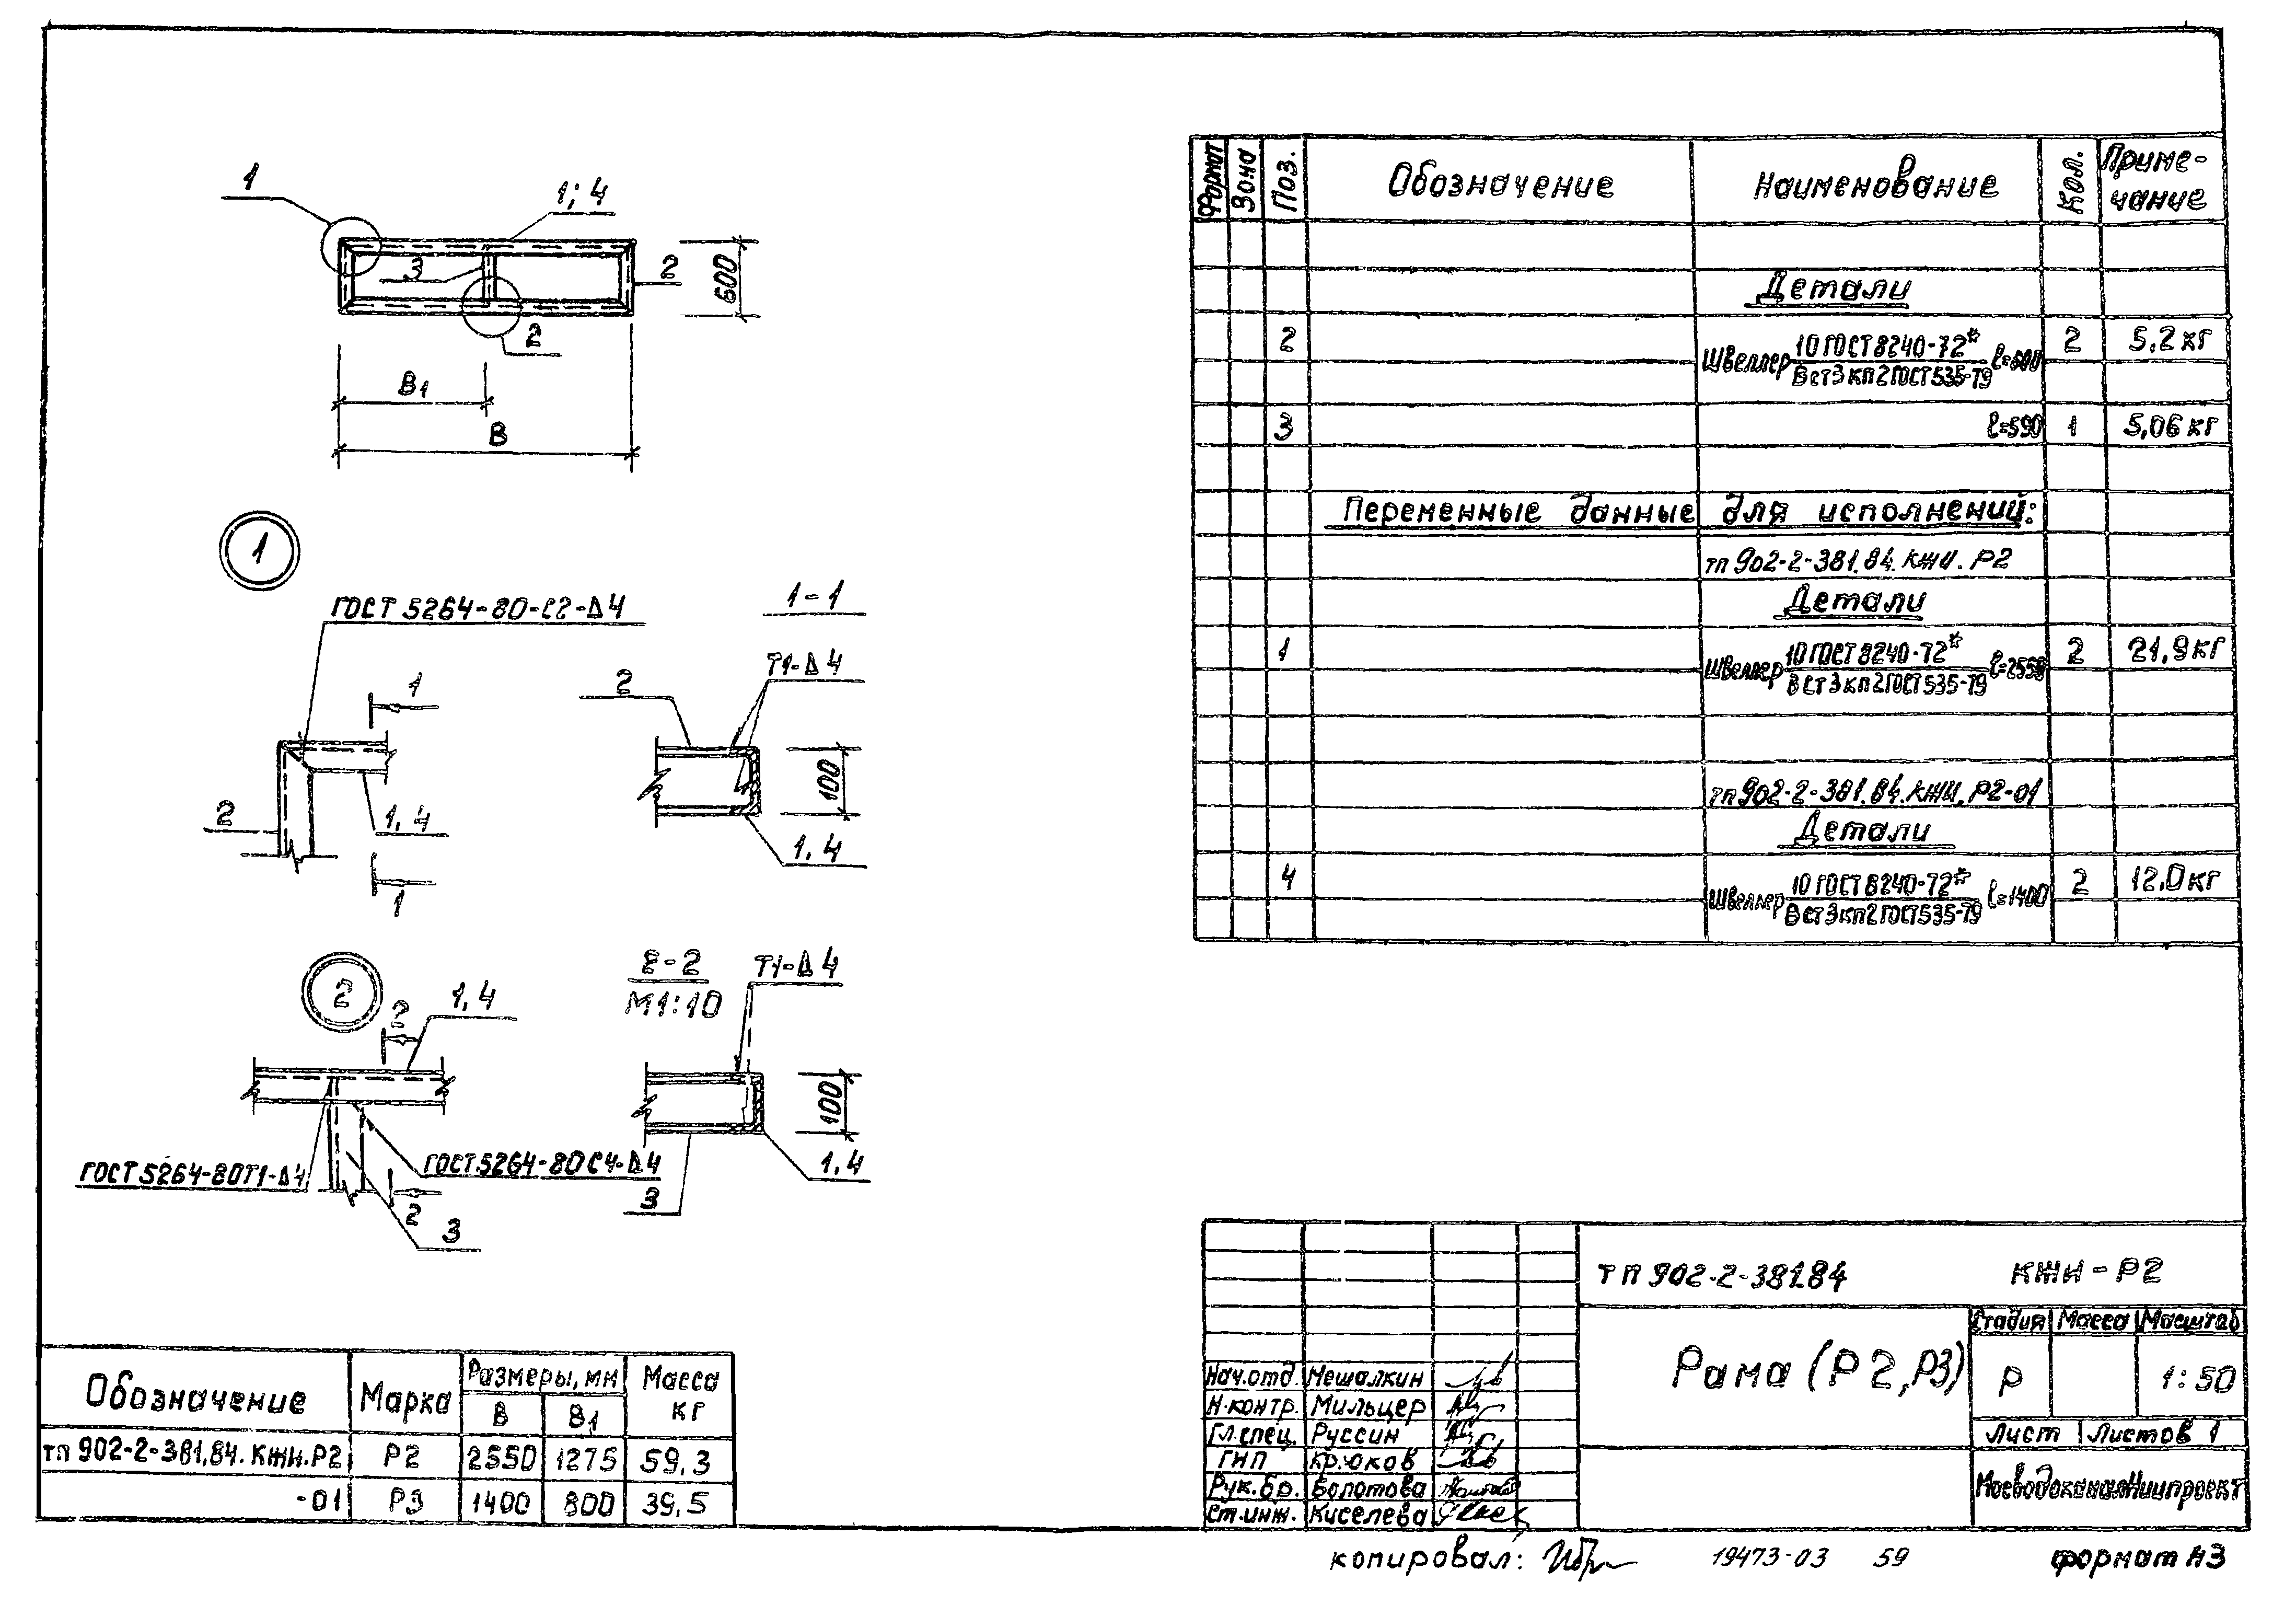 1
1; 4
3
2
600
2
В1
В
1
ГОСТ 5264-80-С2-Δ4
1-1
1
Т1-Δ4
2
100
2
1, 4
1, 4
1
2
1, 4
2
2-2
М1:10
Т1-Δ4
100
ГОСТ5264-80Т1-Δ4
ГОСТ5264-80С4-Δ4
1,4
2
3
3
Формат Зона Поз. Обозначение Наименование Кол. Приме-
чание
Детали
2 Швеллер 10 ГОСТ 8240-72* l=600 2 5,2 кг
Вст3кп2ГОСТ535-79
3 l=590 1 5,06 кг
Переменные данные для исполнений:
тп 902-2-381.84.КЖИ.Р2
Детали
1 Швеллер 10 ГОСТ 8240-72* l=2550 2 21,9 кг
Вст3кп2ГОСТ535-79
тп 902-2-381.84.КЖИ.Р2-01
Детали
4 Швеллер 10 ГОСТ 8240-72* l=1400 2 12,0 кг
Вст3кп2ГОСТ535-79
Обозначение Марка Размеры, мм Масса
кг
В В1
тп 902-2-381,84.КЖИ.Р2 Р2 2550 1275 59,3
-01 Р3 1400 800 39,5
ТП 902-2-381.84 КЖИ-Р2
Рама (Р2,Р3)
Стадия Масса Масштаб
Р 1:50
Лист Листов 1
МосводоканалНиипроект
Нач.отд. Мешалкин
Н.контр. Мильцер
Гл.спец. Руссин
ГИП Крюков
Рук.бр. Болотова
Ст.инж. Киселева
копировал:
19473-03 59
формат А3